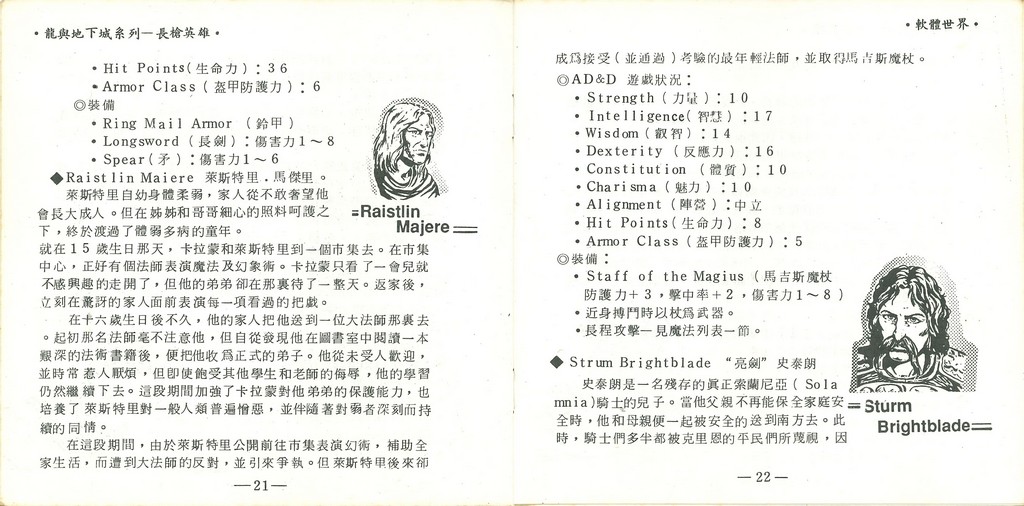 •龍與地下城系列—長槍英雄•
• Hit Points(生命力)：36
• Armor Class(盔甲防護力)：6
◎裝備
• Ring Mail Armor (鈴甲)
• Longsword(長劍)：傷害力1～8
• Spear(矛)：傷害力1～6
◆Raistlin Maiere 萊斯特里．馬傑里。
萊斯特里自幼身體柔弱，家人從不敢奢望他
會長大成人。但在姊姊和哥哥細心的照料呵護之
下，終於渡過了體弱多病的童年。
=Raistlin
Majere=
就在15歲生日那天，卡拉蒙和萊斯特里到一個市集去。在市集
中心，正好有個法師表演魔法及幻象術。卡拉蒙只看了一會兒就
不感興趣的走開了，但他的弟弟卻在那裏待了一整天。返家後，
立刻在驚訝的家人面前表演每一項看過的把戲。
在十六歲生日後不久，他的家人把他送到一位大法師那裏去
。起初那名法師毫不注意他，但自從發現他在圖書室中閱讀一本
艱深的法術書籍後，便把他收爲正式的弟子。他從未受人歡迎，
並時常惹人厭煩，但即使飽受其他學生和老師的侮辱，他的學習
仍然繼續下去。這段期間加強了卡拉蒙對他弟弟的保護能力，也
培養了萊斯特里對一般人類普遍憎惡，並伴隨著對弱者深刻而持
續的同情。
在這段期間，由於萊斯特里公開前往市集表演幻術，補助全
家生活，而遭到大法師的反對，並引來爭執。但萊斯特里後來卻
—21—
•軟體世界•
成爲接受(並通過)考驗的最年輕法師，並取得馬吉斯魔杖。
◎AD&D 遊戲狀況：
• Strength(力量)：10
• Intelligence(智慧)：17
• Wisdom(叡智)：14
• Dexterity (反應力)：16
• Constitution (體質)：10
• Charisma(魅力)：10
• Alignment(陣營)：中立
• Hit Points(生命力)：8
• Armor Class(盔甲防護力)：5
◎裝備：
• Staff of the Magius (馬吉斯魔杖
防護力+3，擊中率+2，傷害力1～8)
• 近身搏鬥時以杖爲武器。
• 長程攻擊—見魔法列表一節。
◆ Strum Brightblade “亮劍”史泰朗
史泰朗是一名殘存的眞正索蘭尼亞(Sola
mnia)騎士的兒子。當他父親不再能保全家庭安
全時，他和母親便一起被安全的送到南方去。此
時，騎士們多半都被克里恩的平民們所蔑視，因
=Sturm
Brightblade=
—22—